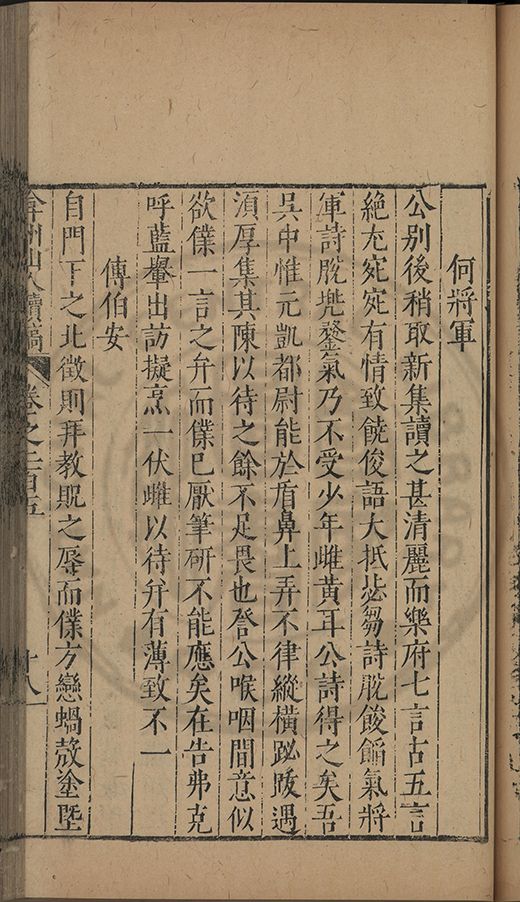 何將軍
公別後稍取新集讀之甚清麗而樂府七言古五言
絶尢宛宛有情致饒俊語大抵苾芻詩脫餕餡氣將
軍詩脫兠鍪氣乃不受少年雌黃耳公詩得之矣吾
吳中惟元凱都尉能於盾鼻上弄不律縱橫跋遇
須厚集其陳以待之餘不足畏也詧公喉咽間意似
欲僕一言之弁而僕已厭筆硏不能應矣在告弗克
呼藍轝出訪擬烹一伏雌以待幷有薄致不一
傅伯安
自門下之北徵則拜教貺之辱而僕方戀蝸殼塗墍
弇州山人續稿 卷之二百五 十八